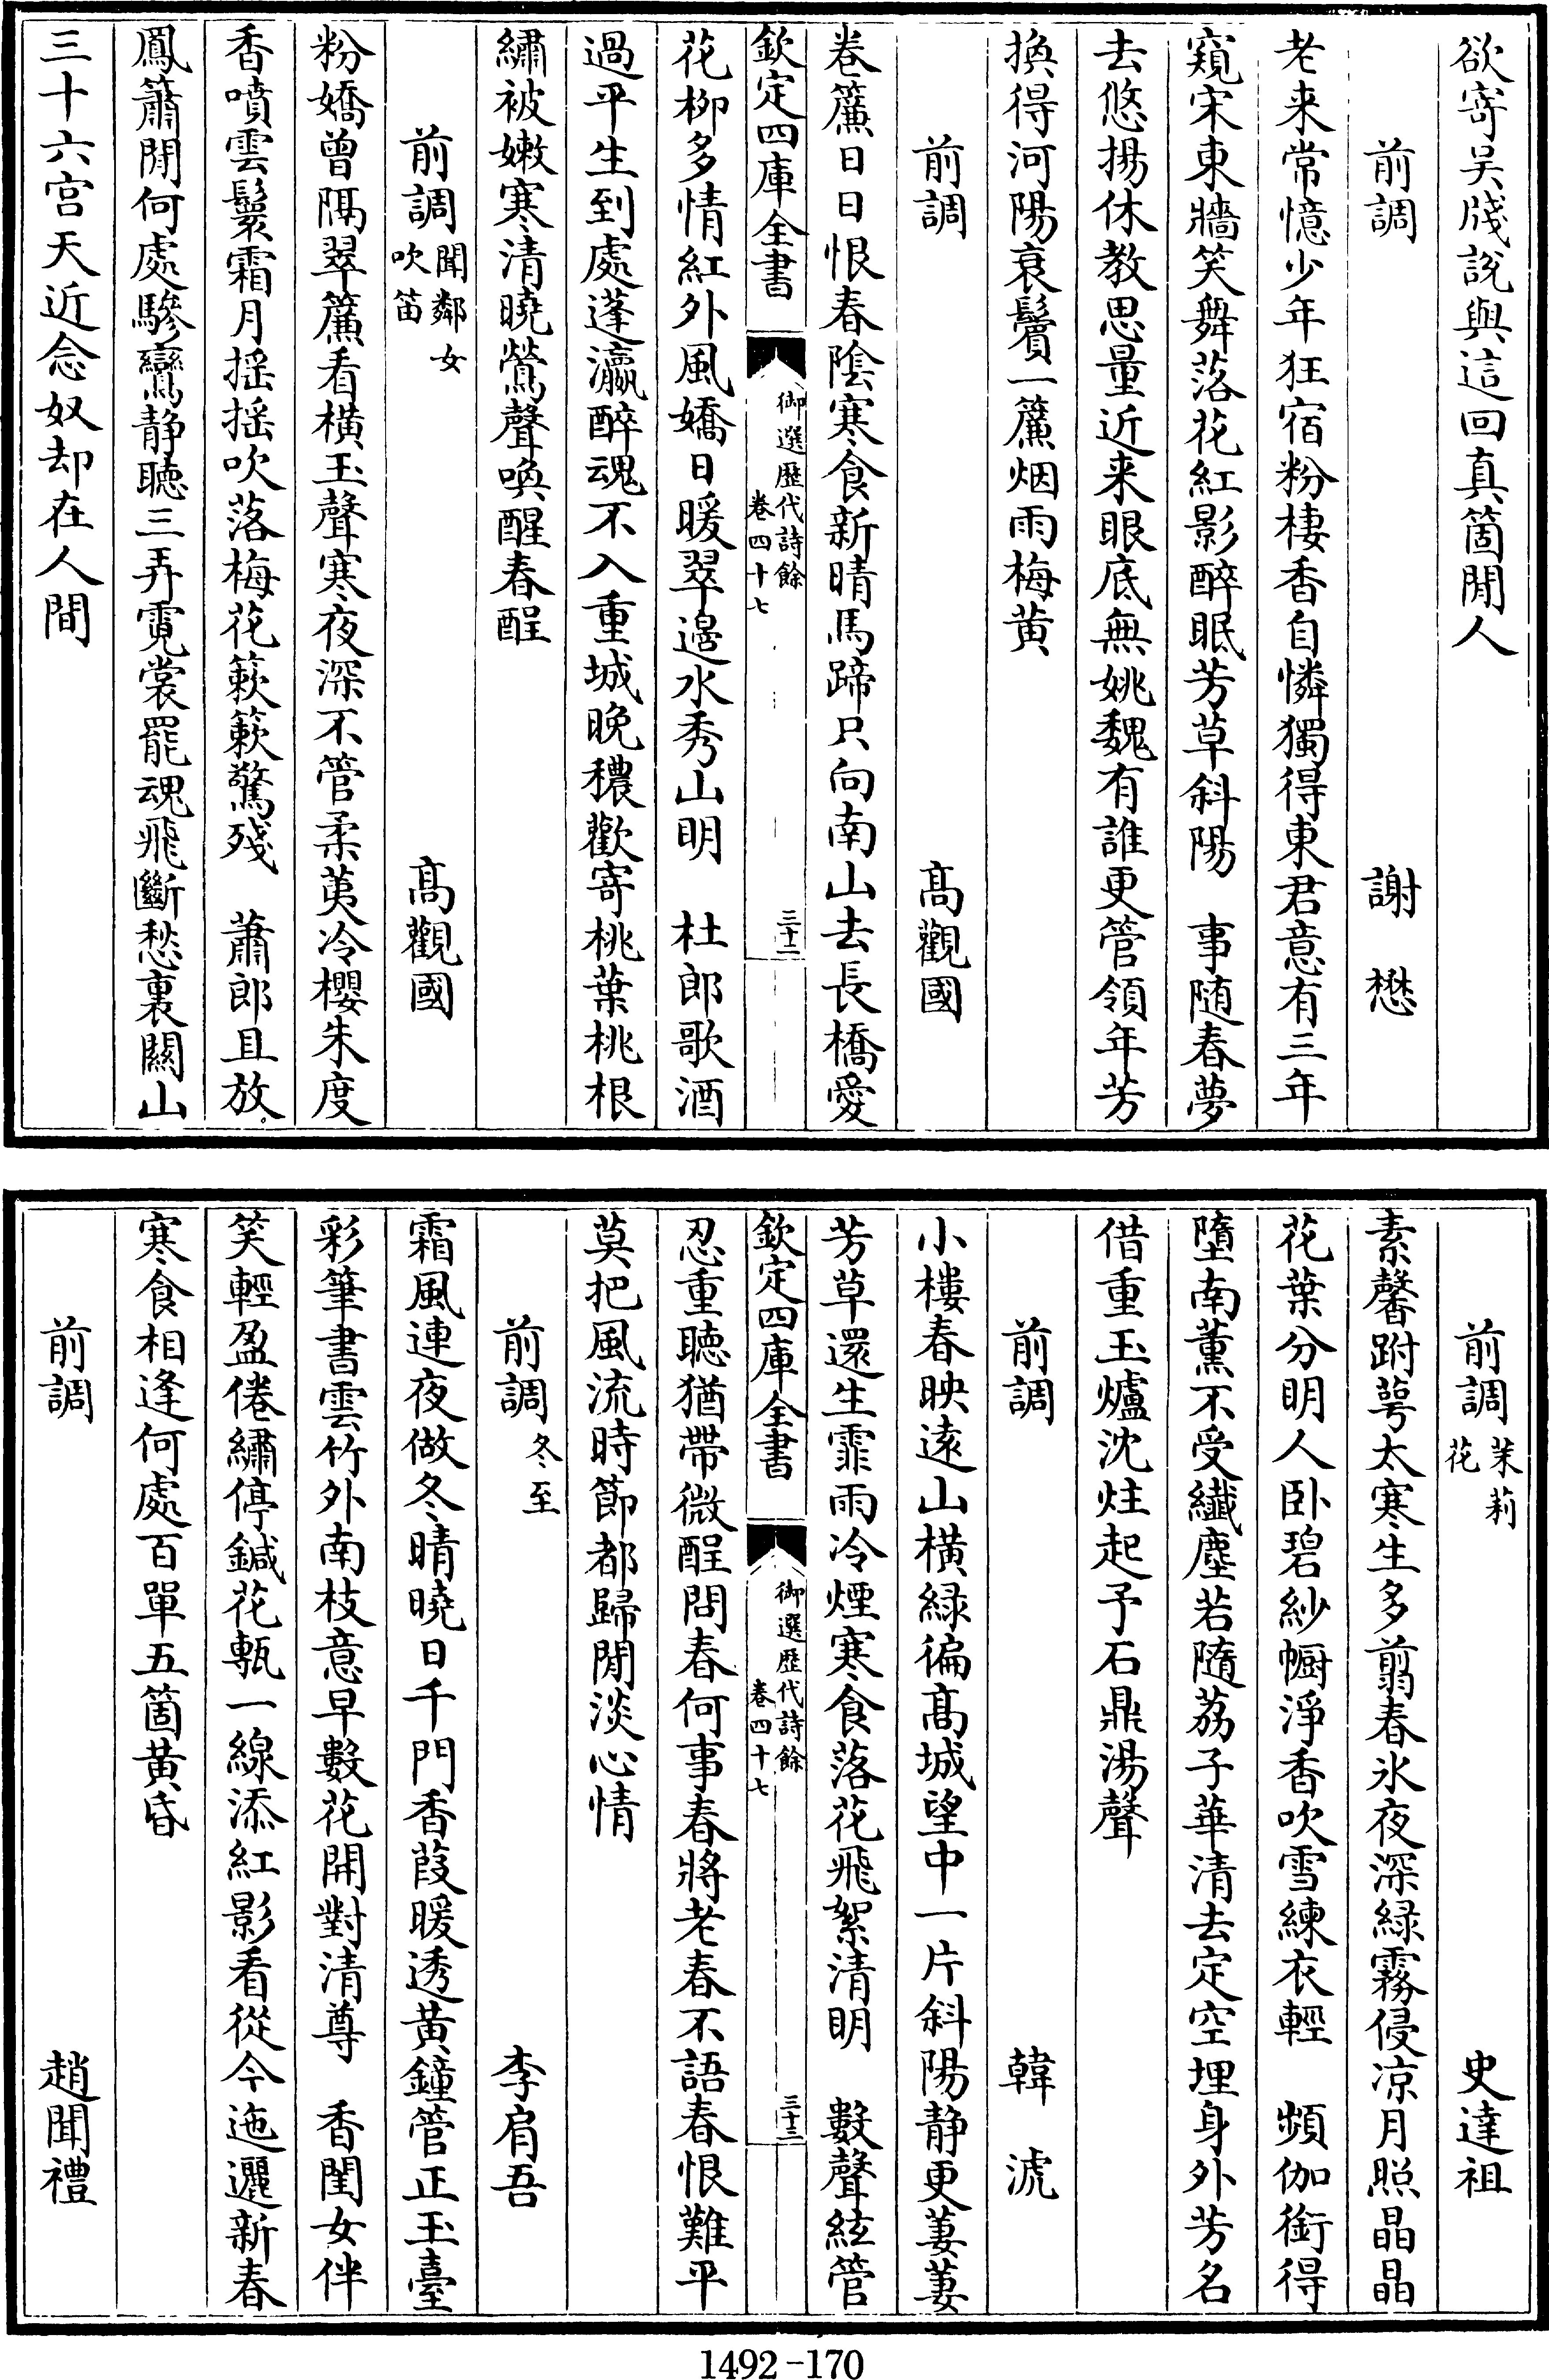 欲寄吴牋說與這回真箇閒人
前調 謝懋
老来常憶少年狂宿粉棲香自憐獨得東君意有三年
窺宋東牆笑舞落花紅影醉眠芳草斜陽 事随春夢
去悠揚休教思量近来眼底無姚魏有誰更管領年芳
換得河陽衰鬢一簾烟雨梅黄
前調 髙觀國
卷簾日日恨春隂寒食新晴馬蹄只向南山去長橋愛
欽定四庫全書 御選歷代詩餘 卷四十七 三十二
花柳多情紅外風嬌日暖翠邉水秀山明 杜郎歌酒
過平生到處蓬瀛醉魂不入重城晚穠歡寄桃葉桃根
繡被嫩寒清曉鶯聲喚醒春酲
前調 聞鄰女吹笛 髙觀國
粉嬌曾隔翠簾看横玉聲寒夜深不管柔荑冷櫻朱度
香噴雲鬟霜月揺揺吹落梅花簌簌驚殘 蕭郎且放
鳳簫閒何處驂鸞静聴三弄霓裳罷魂飛斷愁裏闗山
三十六宫天近念奴却在人間
前調 茉莉花 史達祖
素馨跗萼太寒生多翦春氷夜深緑霧侵凉月照晶晶
花葉分明人卧碧紗幮淨香吹雪練衣輕 頻伽銜得
墮南薫不受纎塵若隨荔子華清去定空埋身外芳名
借重玉爐沈炷起予石鼎湯聲
前調 韓淲
小樓春映逺山横緑徧髙城望中一片斜陽静更萋萋
芳草還生霏雨冷煙寒食落花飛絮清明 數聲絃管
欽定四庫全書 御選歷代詩餘 卷四十七 三十三
忍重聴猶帶微酲問春何事春將老春不語春恨難平
莫把風流時節都歸閒淡心情
前調 冬至 李肩吾
霜風連夜做冬晴曉日千門香葭暖透黄鐘管正玉臺
彩筆書雲竹外南枝意早數花開對清尊 香閨女伴
笑輕盈倦繡停鍼花甎一線添紅影看從今迤邐新春
寒食相逢何處百單五箇黄昏
前調 趙聞禮
1492-170